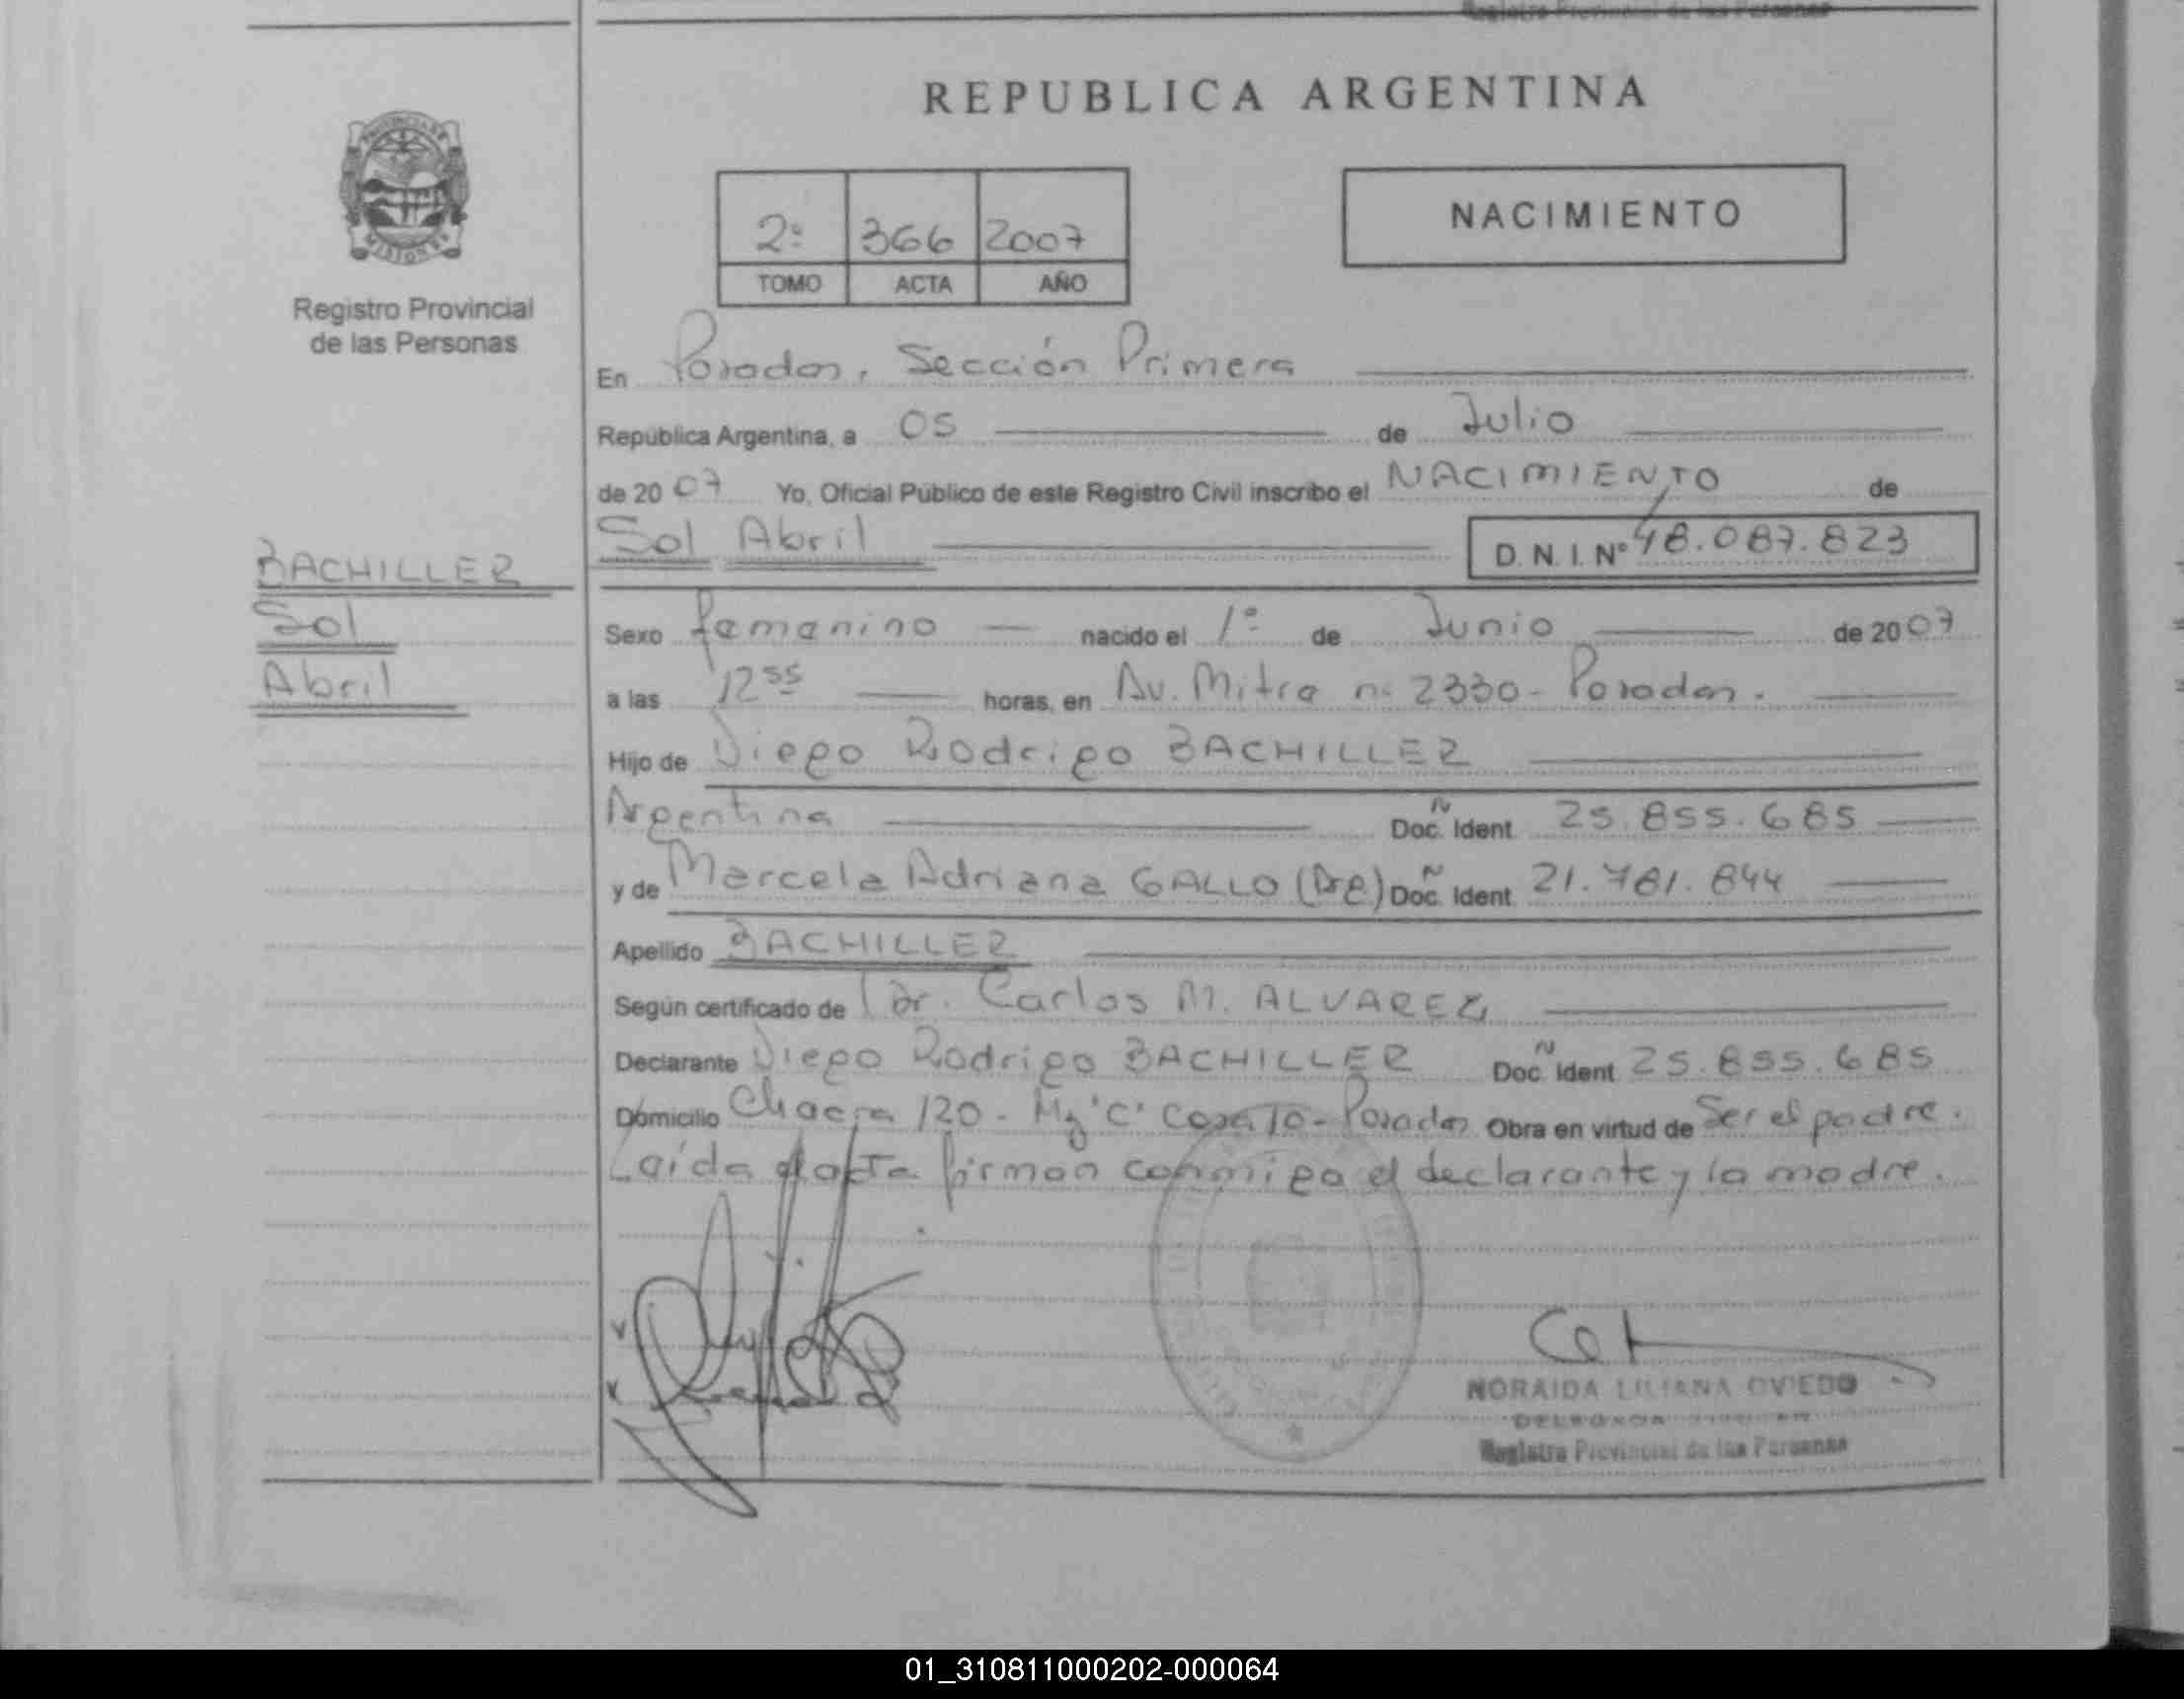 Registro Provincial de las Personas
REPUBLICA ARGENTINA
PROVINCIA DE
MISIONES
Registro Provincial
de las Personas
2º 366 2007
TOMO ACTA AÑO
NACIMIENTO
En Posadas, Sección Primera
Republica Argentina, a 05 de Julio
de 2007 Yo, Oficial Público de este Registro Civil inscribo el NACIMIENTO de
Sol Abril D.N.I. Nº 48.087.823
BACHILLER
Sol
Abril
Sexo femenino nacido el 1º de Junio de 2007
a las 12 55 horas, en Av. Mitre nº 2330 - Posadas.
Hijo de Diego Rodrigo BACHILLER
Argentina Doc. Ident. 25.855.685
y de Marcela Adriana GALLO (Arg) Doc. Ident. 21.781.844
Apellido BACHILLER
Según certificado de Dr. Carlos M. ALVAREZ
Declarante Diego Rodrigo BACHILLER Doc. Ident. 25.855.685
Domicilio Chacra 120 - Mz "C" Casa 10 - Posadas Obra en virtud de Ser el padre.
Leída el acta firman conmigo el declarante y la madre.
NORAIDA LILIANA OVIEDO
Registro Provincial de las Personas
01_310811000202-000064